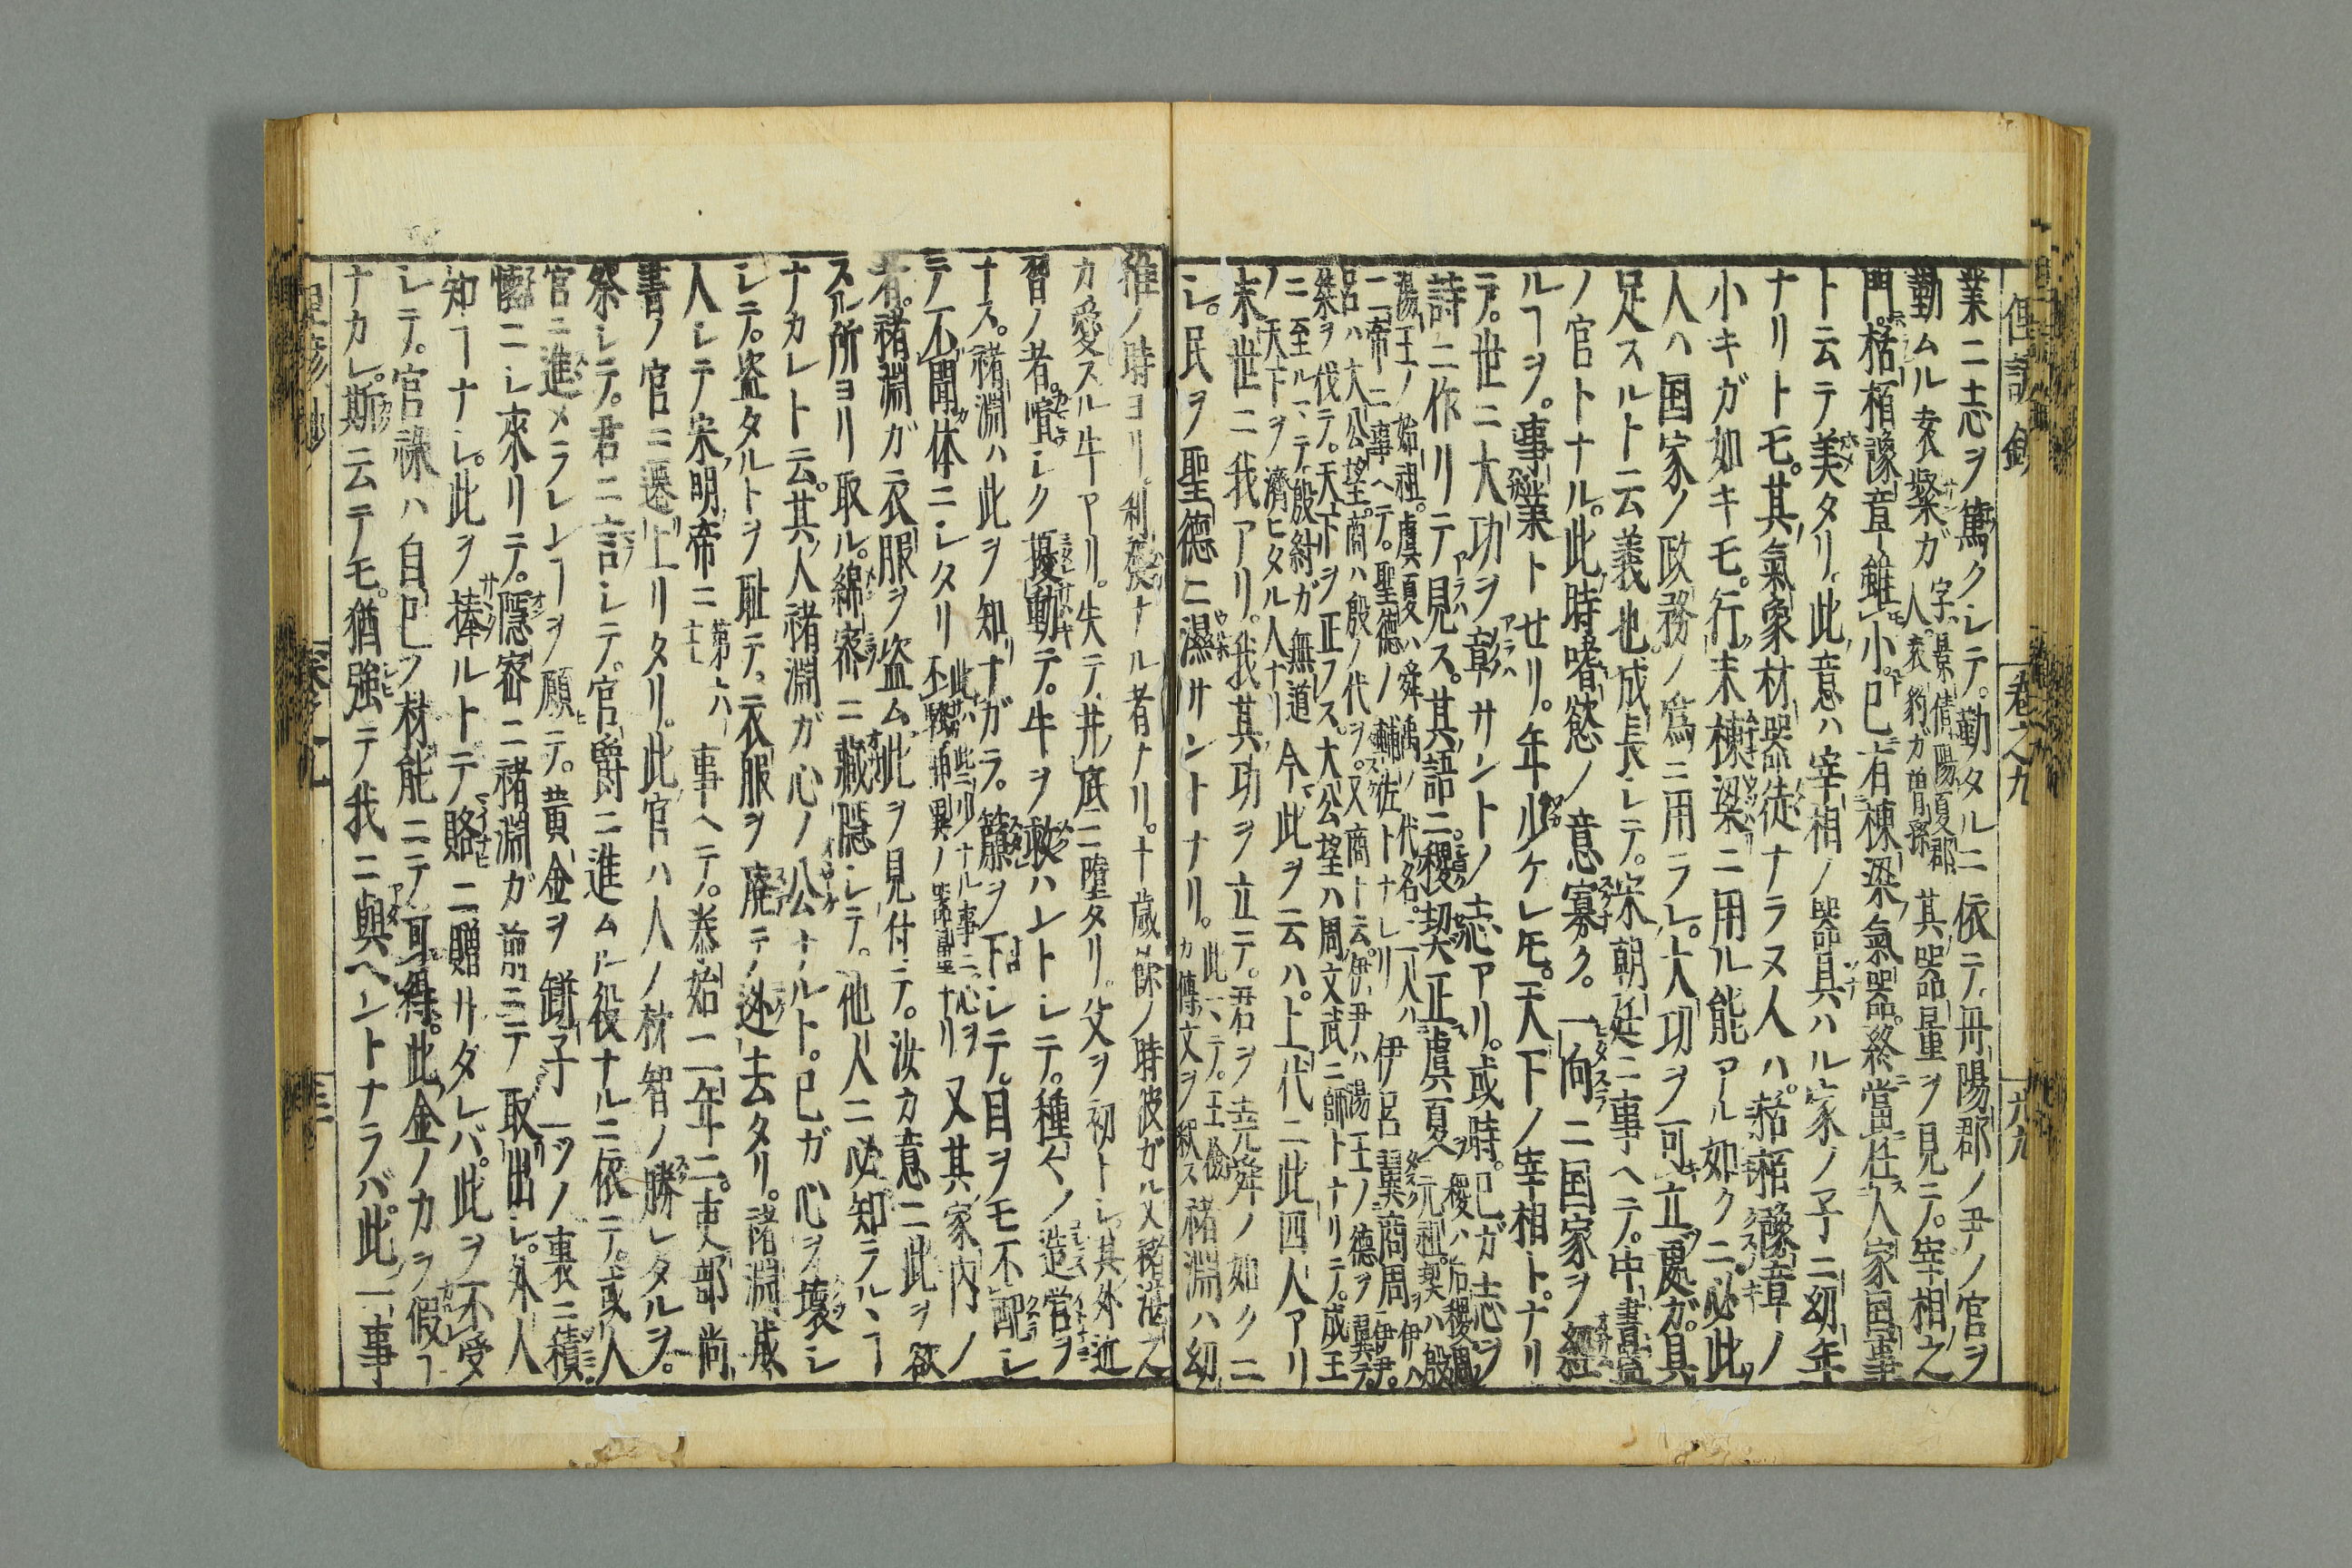 業ニ志ヲ篤クシテ。勤タルニ依テ。丹陽郡ノ尹ノ官ヲ
勤ムル袁粲ガ 字ハ景倩陽夏郡人。袁豹ガ曽孫 其器量ヲ見テ。宰相之
門。栝栢豫章雖小。已有棟梁氣器。終當任人家国事
ト云テ美タリ。此意ハ宰相ノ器具ハル家ノ子ニ幼年
ナリトモ。其氣象材器徒ナラヌ人ハ。栝栢豫章ノ
小キガ如キモ。行末棟梁ニ用ル能アル如クニ。必此
人ハ国家ノ政務ノ爲ニ用ラレ。大功ヲ可立處ガ。具
足スルト云義也。成長シテ。宋朝廷ニ事ヘテ。中書監
ノ官トナル。此時嗜慾ノ意寡ク。一向ニ国家ヲ經
ルヿヲ。事業トせリ。年少ケレ𪜈。天下ノ宰相トナリ
テ。世ニ大功ヲ彰サントノ志アリ。或時。已ガ志ヲ
詩ニ作リテ見ス。其語ニ。稷契正虞夏 稷ハ后稷周ノ元祖。契ハ殷
湯王ノ始祖。虞夏ハ舜禹ノ代名。二人ハ
二帝ニ事ヘテ。聖德ノ輔佐トナレリ 伊呂翼商周 伊ハ伊尹。
呂ハ大公望。商ハ殷ノ代ヲ。又商ト云。伊尹ハ湯王ノ德ヲ翼テ。
桀ヲ伐テ。天下ヲ正フス。大公望ハ周文武ニ師トナリテ。成王
ニ至ルマテ殷紂ガ無道
ノ天下ヲ濟ヒタル人ナリ 今此ヲ云ハ。上代ニ此四人アリ
末世ニ我アリ。我其功ヲ立テ。君ヲ堯舜ノ如クニ
シ。民ヲ聖德ニ濕サントナリ。 此マテ。王儉カ傳文ヲ釈ス 褚淵ハ幼
稚ノ時ヨリ。利發ナル者ナリ。十歳餘ノ時彼ガ父褚湛之
カ愛スル牛アリ。失テ井ノ底ニ墮タリ。父ヲ初トシ。其外近
習ノ者。喧シク擾動テ。牛ヲ救ハントシテ。種々ノ造営ヲ
ナス。褚淵ハ此ヲ知ナガラ。簾ヲ下シテ。目ヲモ不配シ
テ。不聞体ニシタリ 此ハ些少ナル事ニ。心ヲ不騒 又其家内ノ
者。褚淵ガ衣服ヲ盗ム。此ヲ見付テ。汝カ意ニ此ヲ欲
スル所ヨリ取ル。綿密ニ藏隱シテ。他人ニ必知ラルヽヿ
ナカレト云。其人褚淵ガ心ノ公ナルト。已ガ心ヲ壞シ
シテ。盗タルトヲ耻テ。衣服ヲ廃テ。迯去タリ。褚淵成
人シテ宋明帝ニ 第六主 事ヘテ。泰始二年ニ。吏部尚
書ノ官ニ遷上リタリ。此官ハ人ノ材智ノ勝レタルヲ。
祭シテ。君ニ言シテ。官爵ニ進ムル役ナルニ依テ。或人
官ニ進メラレンヿヲ願テ。黄金ヲ鉼子一ツノ裏ニ積
懷ニシ來リテ。隱密ニ褚淵ガ前ニテ取出シ。外人
知ヿナシ。此ヲ捧ルトテ賂ニ贈サタレバ。此ヲ不受
シテ。官祿ハ自已ノ材能ニテ可得。此金ノカヲ假ヿ
ナカレ。斯云テモ。猶強テ我ニ與ヘントナラバ。此一事
卷之九
六九